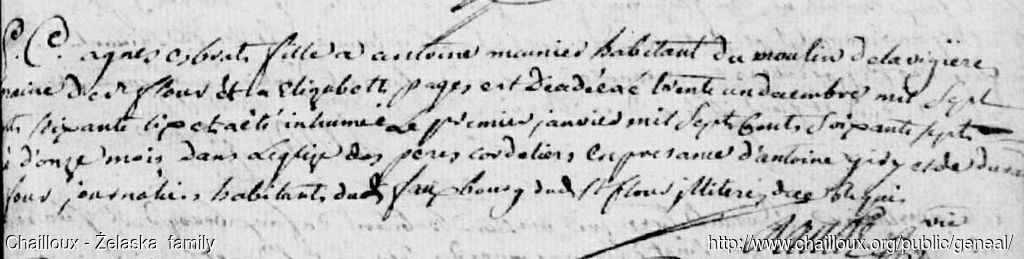 agnes esbrat fille a antoine meunier habitant du moulin delavigiere
flour et a Elizabeth pages est decedée le trente un decembre mil sept
soixante six et a été inhumée Le premier janvier mil sept Cents soixante sept
d'onze mois dans Leglize des peres cordeliers en presance d'antoine et de
journaliers habitants dud faux bourg dud St flour illiterés de ce
Chailloux - Żelaska family
http://www.chailloux.org/public/geneal/